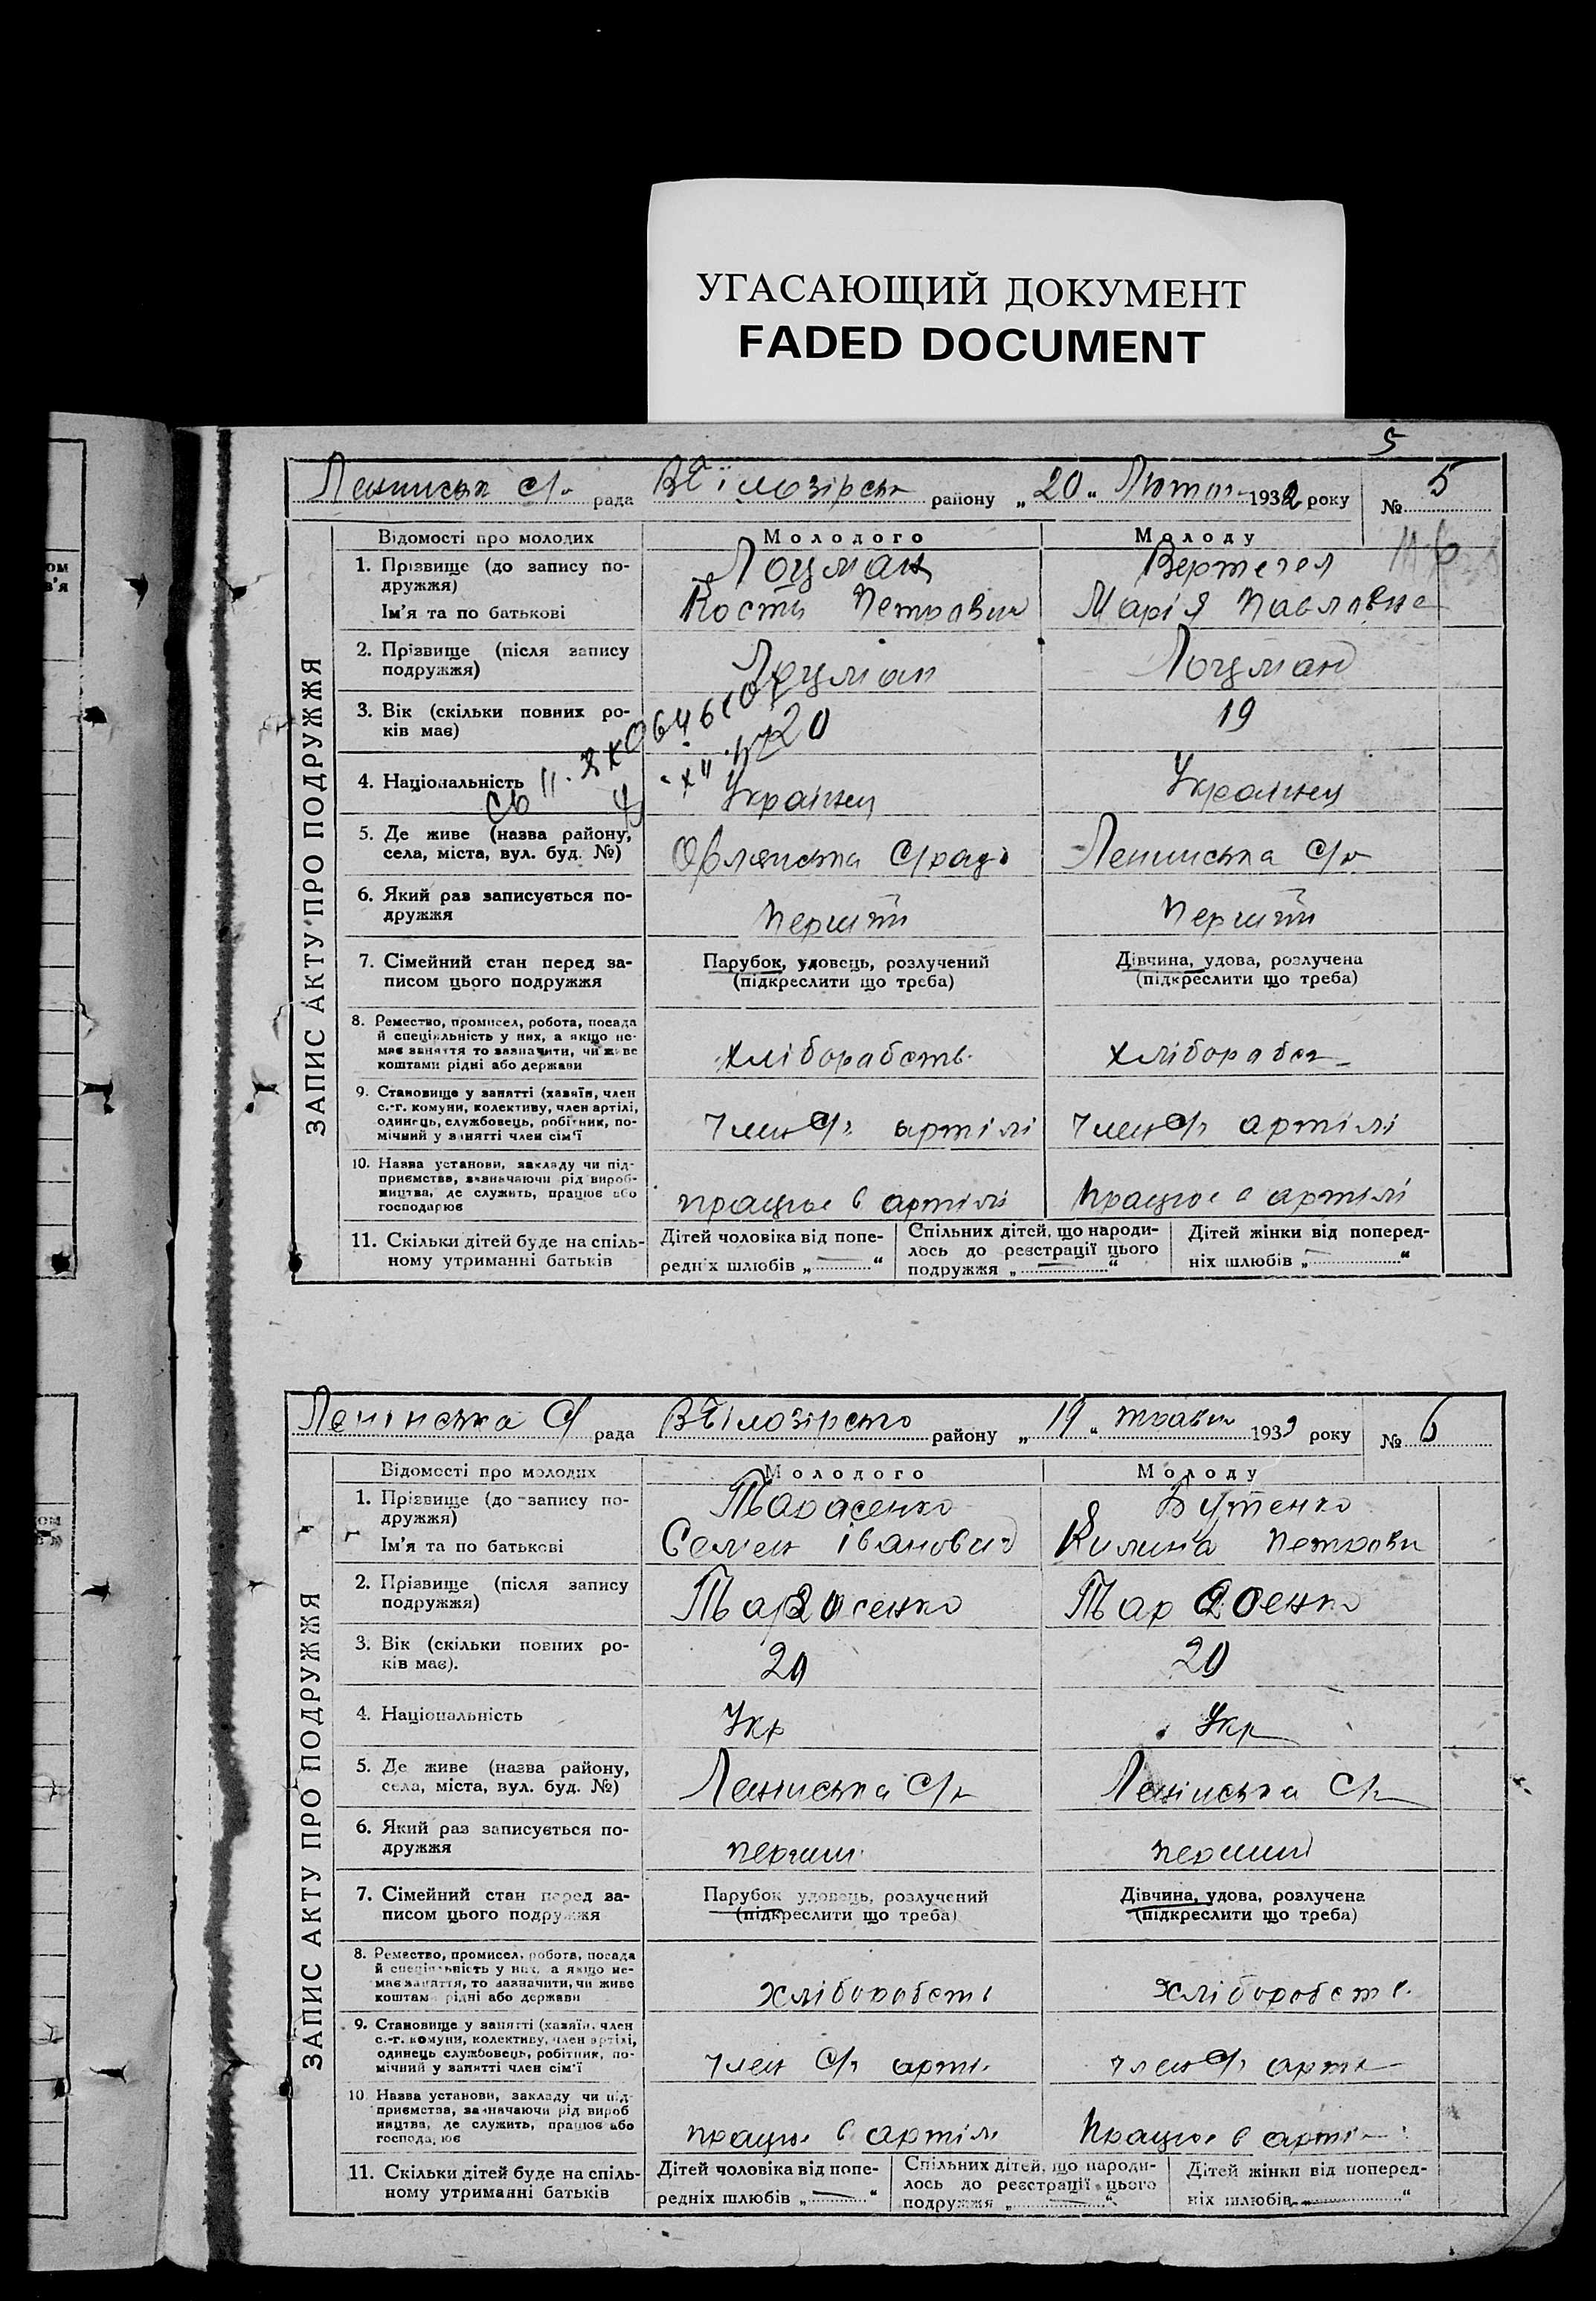 УГАСАЮЩИЙ ДОКУМЕНТ
FADED DOCUMENT
5
рада району „ 20 “ 1932 року № 5
ЗАПИС АКТУ ПРО ПОДРУЖЖЯ
Відомості про молодих Молодого Молоду
1. Прізвище (до запису по-
дружжя)
Лоцман Вертегел
Ім'я та по батькові Кость Марія Павловна
2. Прізвище (після запису
подружжя)
Лоцман Лоцман
3. Вік (скільки повних ро-
ків має)
20 19
4. Національність Українец Українец
5. Де живе (назва району,
села, міста, вул. буд. №)
С/рада Ленинська С/р
6. Який раз записується по-
дружжя
Перший Перший
7. Сімейний стан перед за-
писом цього подружжя
Парубок, удовець, розлучений
(підкреслити що треба)
Дівчина, удова, розлучена
(підкреслити що треба)
8. Ремество, промисел, робота, посада
й спеціяльність у них, а якщо не-
має заняття то зазначити, чи живе
коштами рідні або держави
хліборобств хлібороб
9. Становище у занятті (хазяїн, член
с.-г. комуни, колективу, член артілі,
одинець, службовець, робітник, по-
мічний у занятті член сім'ї
член С/г артілі член С/г артілі
10. Назва установи, закладу чи під-
приємства, зазначаючи рід вироб-
ництва, де служить, працює або
господарює
працює в артілі працює в артілі
11. Скільки дітей буде на спіль-
ному утриманні батьків
Дітей чоловіка від попе-
редніх шлюбів „ — “
Спільних дітей, що народи-
лось до реєстрації цього
подружжя „ — “
Дітей жінки від поперед-
ніх шлюбів „ — “
Ленінська С/ рада району „ 19 “ 193 року № 6
ЗАПИС АКТУ ПРО ПОДРУЖЖЯ
Відомості про молодих Молодого Молоду
1. Прізвище (до запису по-
дружжя)
Тарасенко Бутенко
Ім'я та по батькові Семен Іванович Килина
2. Прізвище (після запису
подружжя)
3. Вік (скільки повних ро-
ків має).
20 20
4. Національність Укр Укр
5. Де живе (назва району,
села, міста, вул. буд. №)
Ленінська С/р Ленінська С/р
6. Який раз записується по-
дружжя
перший перший
7. Сімейний стан перед за-
писом цього подружжя
Парубок удовець, розлучений
(підкреслити що треба)
Дівчина, удова, розлучена
(підкреслити що треба)
8. Ремество, промисел, робота, посада
й спеціяльність у них, а якщо не-
має заняття, то зазначити, чи живе
коштами рідні або держави
хліборобств хліборобств
9. Становище у занятті (хазяїн, член
с.-г. комуни, колективу, член артілі,
одинець службовець, робітник, по-
мічний у занятті член сім'ї
член С/г арті член С/г арті
10. Назва установи, закладу чи під-
приємства, зазначаючи рід вироб
ництва, де служить, працює або
господарює
працює в артіл працює в арті
11. Скільки дітей буде на спіль-
ному утриманні батьків
Дітей чоловіка від попе-
редніх шлюбів „ — “
Спільних дітей, що народи-
лось до реєстрації цього
подружжя „ — “
Дітей жінки від поперед-
ніх шлюбів „ “